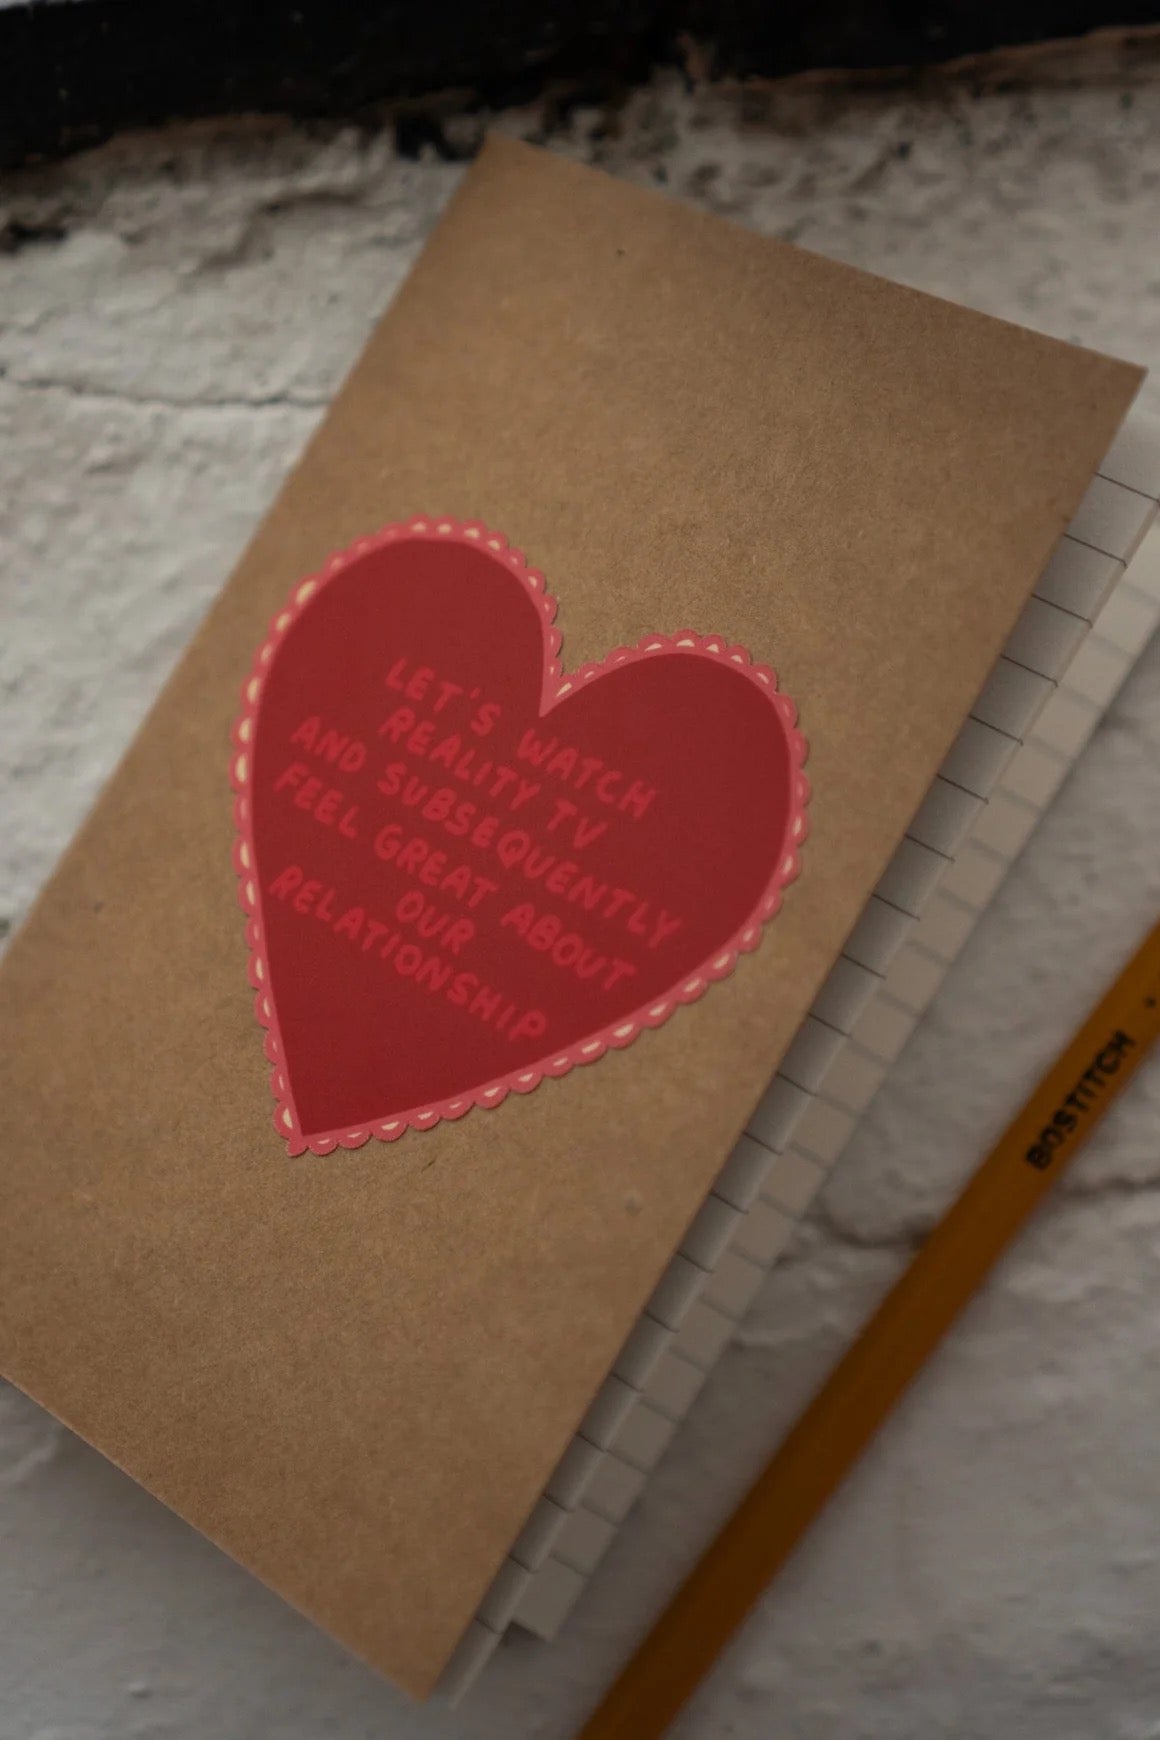 LET'S WATCH
REALITY TV
AND SUBSEQUENTLY
FEEL GREAT ABOUT
OUR
RELATIONSHIP
BOSTITCH